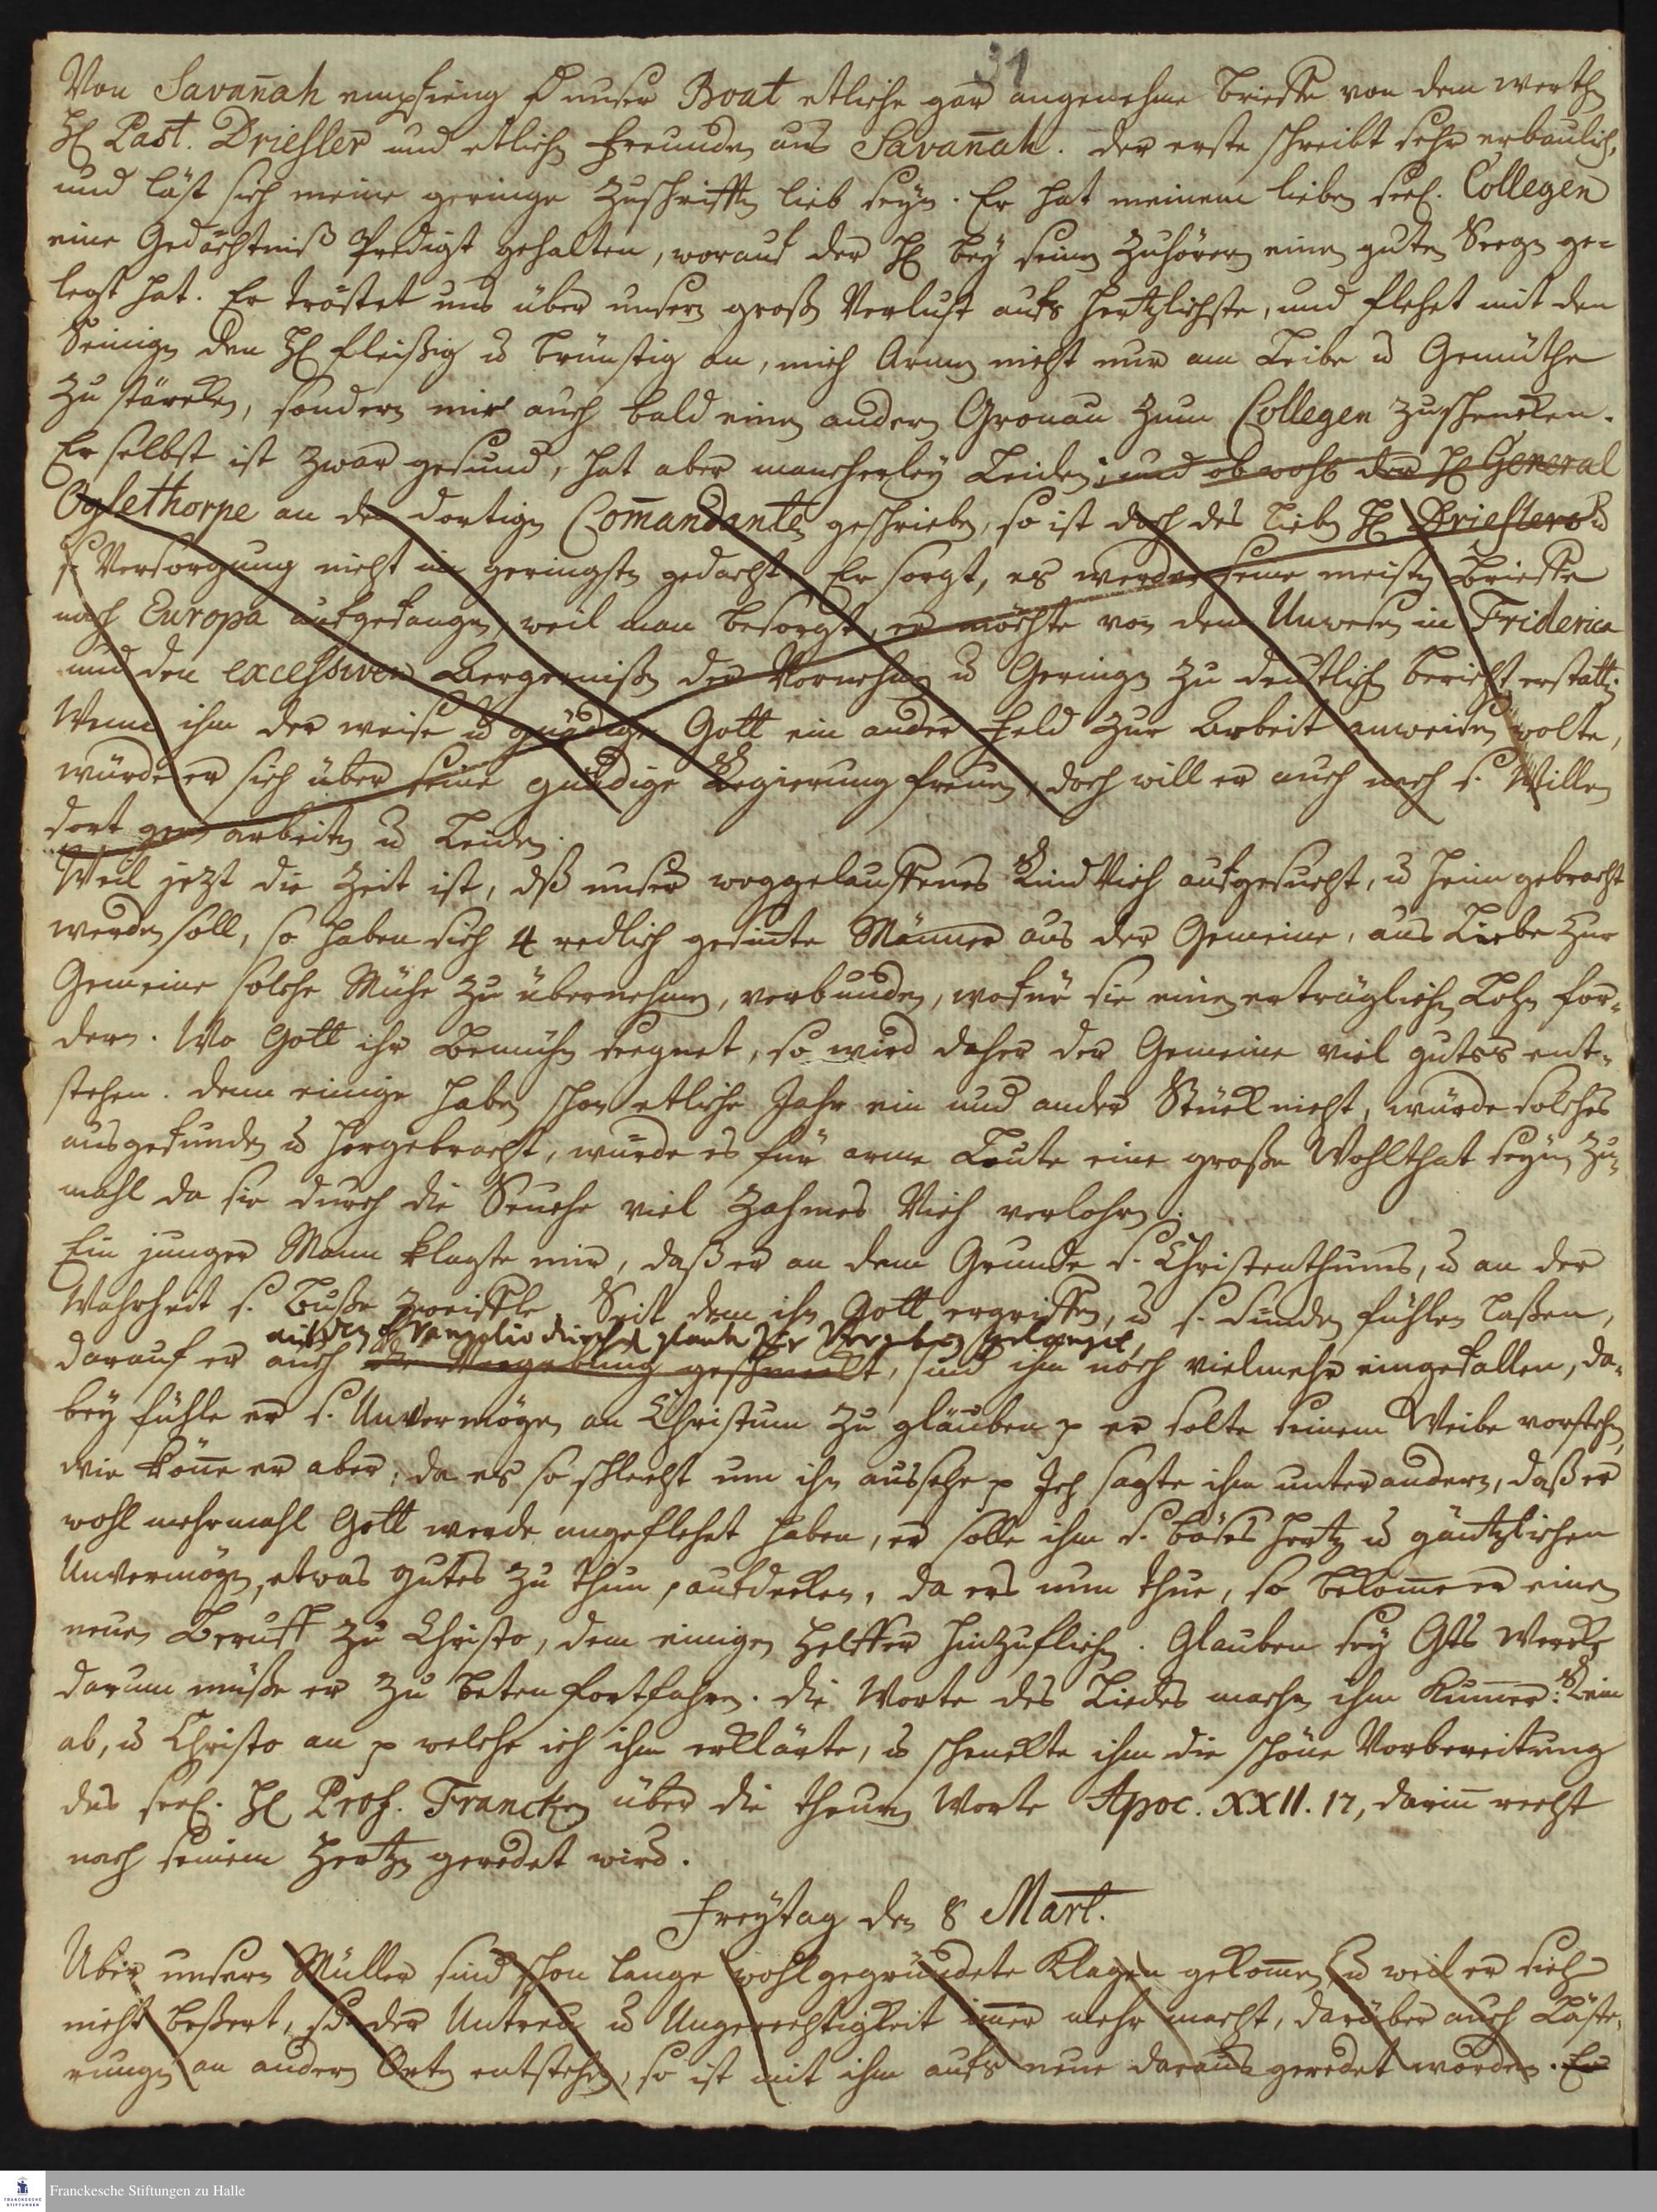 31
Von Savañah empfieng d unser Boat etliche gar angenehme Brieffe von dem werthen
H. Past. Driesler und etlichen Freunden aus Savañah. der erste schreibt sehr erbaulich,
und läst sich meine geringe Zuschrifften lieb seyn. Er hat meinem lieben seel. Collegen
eine Gedächtniß Predigt gehalten, worauf der H. bey seinen Zuhörern einen guten Seegen ge-
legt hat. Er tröstet uns über unsern großen Verlust aufs hertzlichste, und flehet mit den
Seinigen den H. fleißig u. brünstig an, mich Armen nicht nur am Leibe u. Gemüthe
zu stärcken, sondern mir auch bald einen andern Gronau zum Collegen zuschencken.
Er selbst ist zwar gesund, hat aber mancherley Leiden; und obwohl der H. General
Oglethorpe an den dortigen Com̃andanten geschrieben, so ist doch des lieben H. Drieslers u.
s. Versorgung nicht im geringsten gedacht. Er sorgt, es werden seine meisten Brieffe
nach Europa aufgefangen, weil man besorgt, er möchte von dem Unwesen in Friderica
und den excessiven Aergernißen der Vornehmen u. Geringen zu deutlich bericht erstatten.
Wenn ihm der weise u. gnädige Gott ein ander Feld zur Arbeit anweisen wolte,
würde er sich über seine gnädige Regierung freuen, doch will er auch nach s. Willen
dort gern arbeiten u. Leiden.
Weil jezt die Zeit ist, dß unser weggelauffenes RindVieh aufgesucht, u. heim gebracht
werden soll, so haben sich 4 redlich gesiñte Männer aus der Gemeine, aus Liebe zur
Gemeine solche Mühe zu übernehmen, verbunden, wofür sie einen erträglichen Lohn for-
dern. Wo Gott ihr Bemühen seegnet, so wird daher der Gemeine viel gutes ent-
stehen. denn einige haben schon etliche Jahr ein und ander Stück nicht, würde solches
ausgefunden u. hergebracht, würde es für arme Leute eine große Wohlthat seyn, zu-
mahl da sie durch die Seuche viel zahmes Vieh verlohren.
Ein junger Mann klagte mir, daß er an dem Grunde s. Christenthums, u. an der
Wahrheit s. Buße zweiffle. Seit dem ihn Gott ergriffen, u. s. Sünden fühlen laßen,
aus dem Evangelio zur Vergebung gelanget,
darauf er auch die Vergebung geschmeckt, sind ihm noch vielmehr eingefallen, da-
bey fühle er s. Unvermögen an Christum zu gläuben p er solte seinem Weibe vorstehen,
wie köñe er aber, da es so schlecht um ihn aussehe p Ich sagte ihm unter andern, daß er
wohl mehrmahl Gott werde angeflehet haben, er solle ihm s. böses Hertz u. gäntzlichen
Unvermögen, etwas gutes zu thun, aufdecken, da ers nun thue, so bekom̃e er einen
neuen Beruff zu Christo, dem einigen Helffer hinzufliehen. Glauben sey Gtts Werck
darum müße er zu beten fortfahren. die Worte des Liedes machen ihm Kum̃er: Rein
ab, u. Christo an p welche ich ihm erklärte, u. schenckte ihm die schöne Vorbereitung
des seel. H. Prof. Francken über die theuren Worte Apoc. XXII. 17, dariñ recht
nach seinem Hertzen geredet wird.
Freytag den 8 Mart.
Uber unsern Müller sind schon lange wohl gegründete Klagen gekom̃en, u. weil er sich
nicht beßert, sondern der Untreu u. Ungerechtigkeit im̃er mehr macht, darüber auch Läste-
rungen an andern Orten entstehen, so ist mit ihm aufs neue daraus geredet worden. Er
Franckesche Stiftungen zu Halle